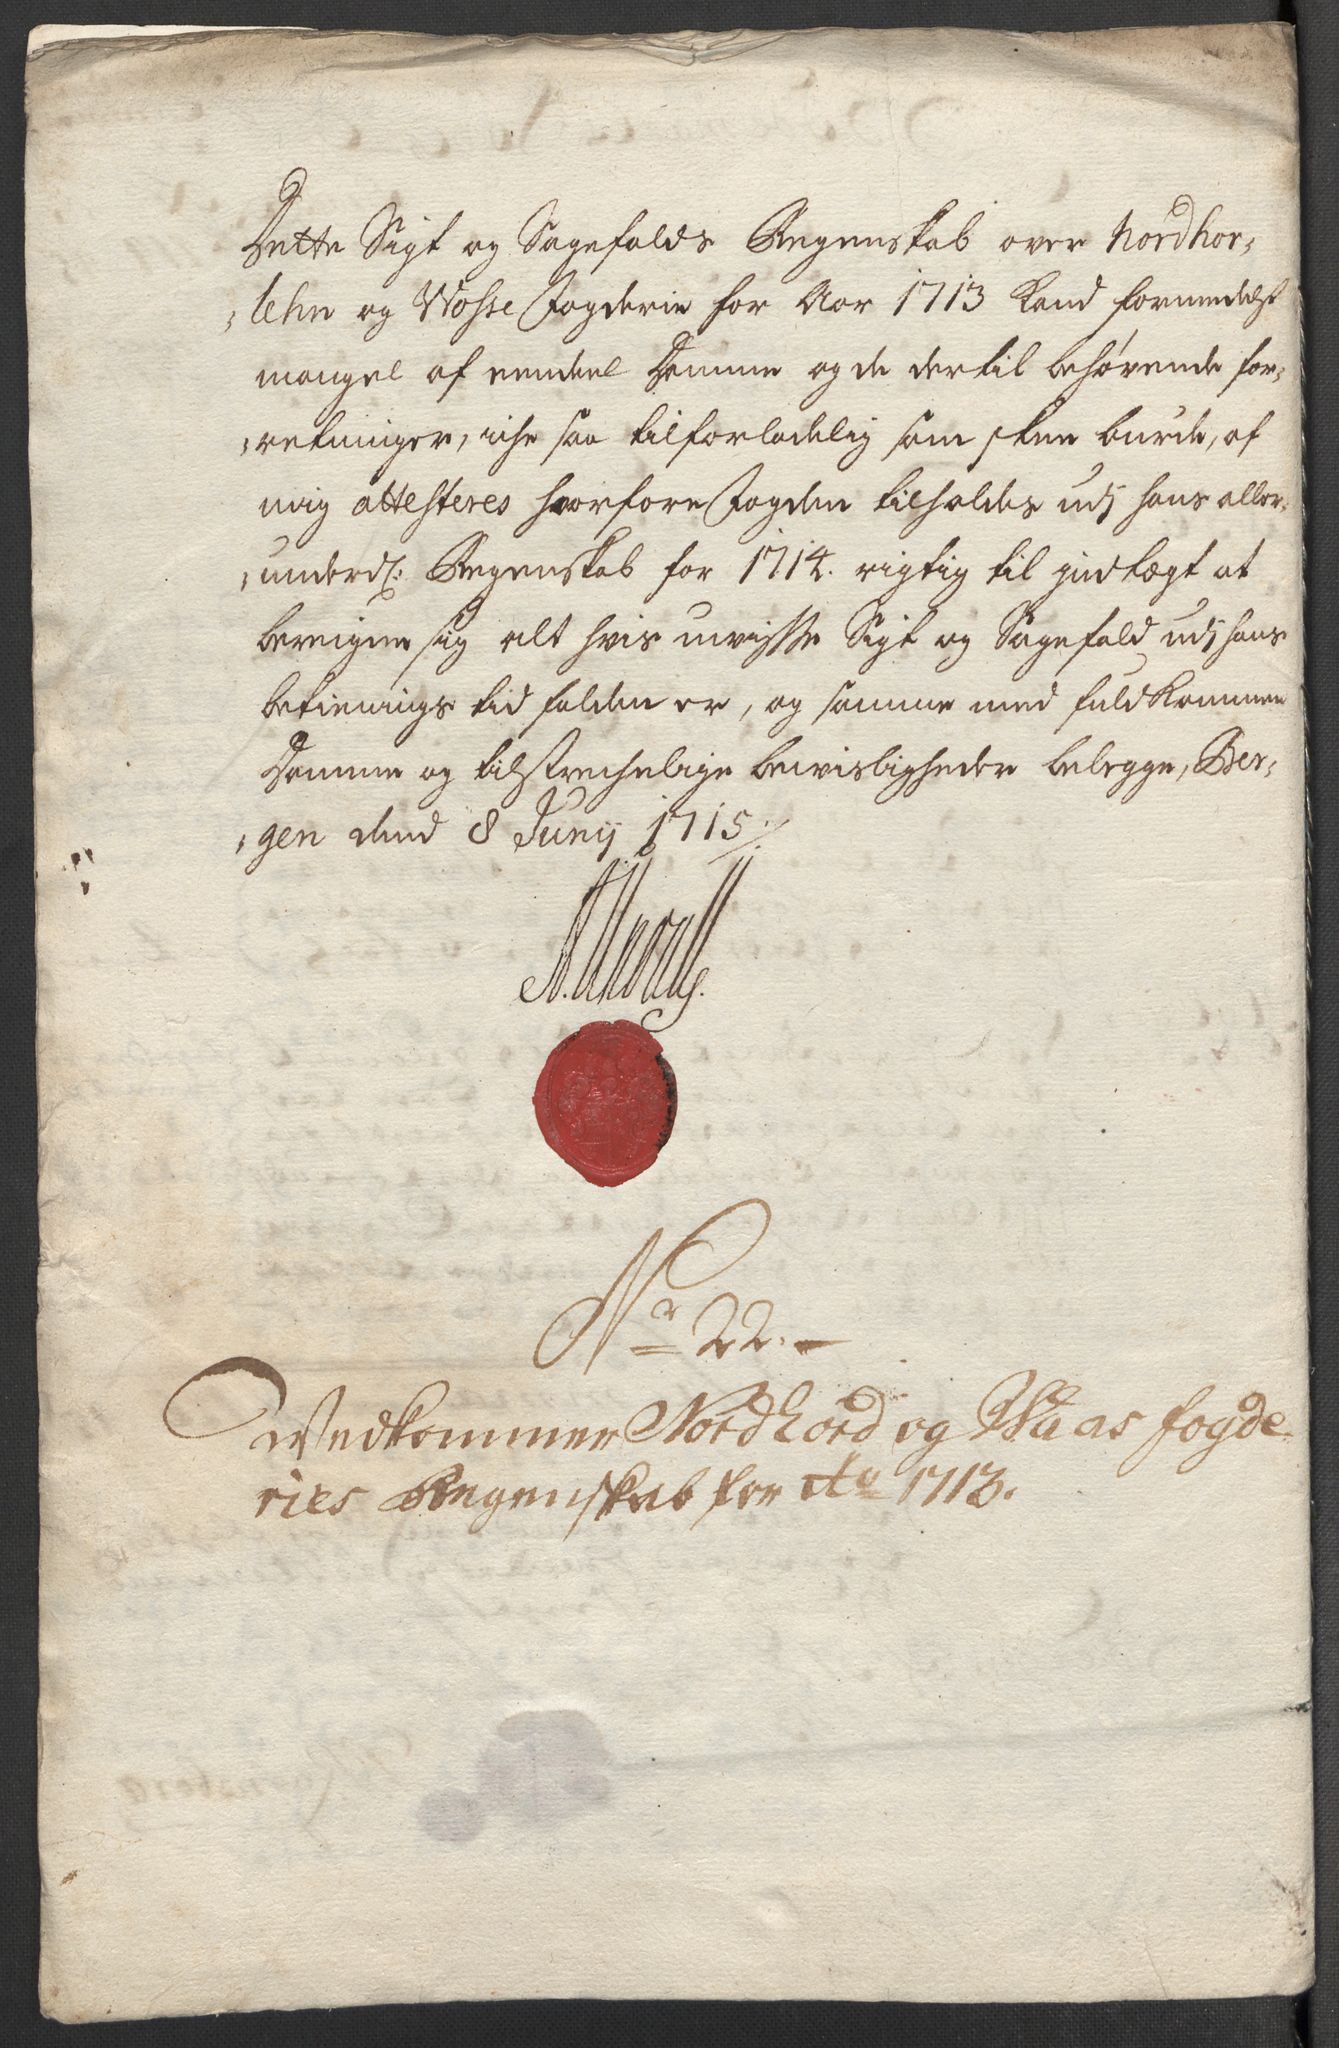 Dette Sigt og Sagefalds Regenskab over Nordhor-
-lehn og Vosse fogderie for Aar 1713 kand formedelst
mangel af eendeel Domme og de dertil behørende for-
-retninger, iche saa tilforladelig som skee burde, af
mig attesteres hvorfore fogden tilholdes udj hans aller-
-underd: Regenskab for 1714. rigtig til jndtægt at
bereigne sig alt hvis uvisse Sigt og Sagefald udj hans
betienings tid falden er, og samme med fuldkommen
Domme og tilstrechelige bevisligheder belegge, Ber-
-gen dend 8 Junij 1715
Nr 22.
Vedkommer Nordhord og Waas fogde-
ries Regenskab for Ao 1713.